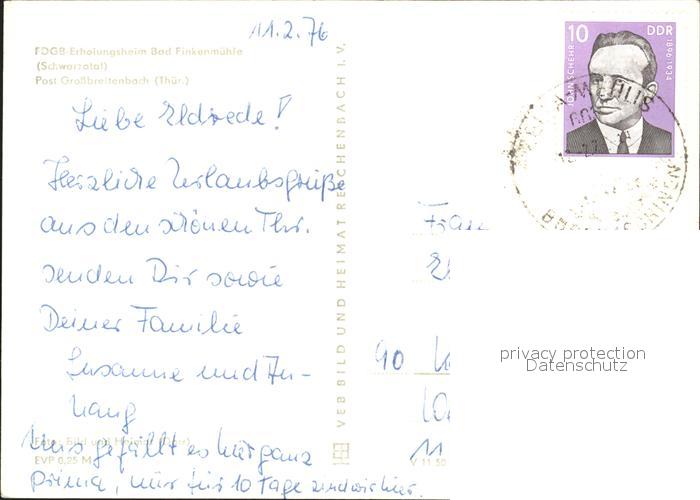 11.2.76
FDGB-Erholungsheim Bad Finkenmühle
(Schwarzatal)
Post Großbreitenbach (Thür.)
Liebe Eldrede!
Herzliche Urlaubsgrüße
aus dem schönen Thr.
senden Dir sowie
Deiner Familie
Susanne und An-
hang
Uns gefällt es hier ganz
prima, nur für 10 Tage sind wir hier.
Foto: Bild und Heimat
EVP 0,25 M
VEB BILD UND HEIMAT REICHENBACH I. V.
V 11 50
10
DDR
JOHN SCHEHR
1896-1934
Frau
90
11
privacy protection
Datenschutz